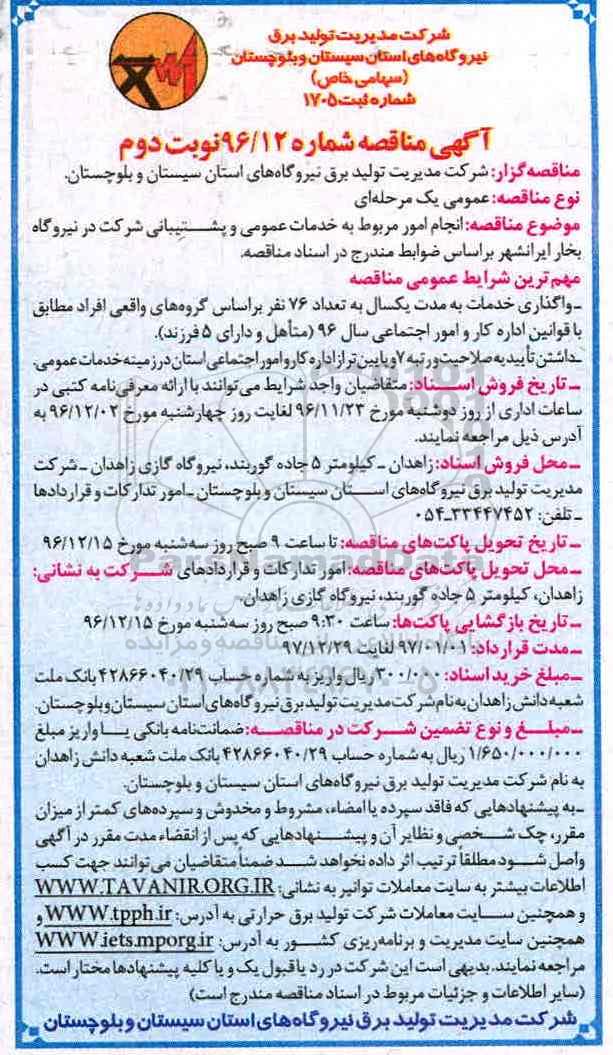 شرکت مدیریت تولید برق
نیروگاه‌های استان سیستان و بلوچستان
(سهامی خاص)
شماره ثبت ۱۷۰۵
آگهی مناقصه شماره ۹۶/۱۲ نوبت دوم
مناقصه‌گزار: شرکت مدیریت تولید برق نیروگاه‌های استان سیستان و بلوچستان.
نوع مناقصه: عمومی یک مرحله‌ای
موضوع مناقصه: انجام امور مربوط به خدمات عمومی و پشتیبانی شرکت در نیروگاه
بخار ایرانشهر براساس ضوابط مندرج در اسناد مناقصه.
مهم‌ترین شرایط عمومی مناقصه
ـ واگذاری خدمات به مدت یکسال به تعداد ۷۶ نفر براساس گروه‌های واقعی افراد مطابق
با قوانین اداره کار و امور اجتماعی سال ۹۶ (متأهل و دارای ۵ فرزند).
ـ داشتن تأییدیه صلاحیت و رتبه ۷ و پایین تر از اداره کار و امور اجتماعی استان در زمینه خدمات عمومی.
ـ تاریخ فروش اسناد: متقاضیان واجد شرایط می‌توانند با ارائه معرفی‌نامه کتبی در
ساعات اداری از روز دوشنبه مورخ ۹۶/۱۱/۲۳ لغایت روز چهارشنبه مورخ ۹۶/۱۲/۰۲ به
آدرس ذیل مراجعه نمایند.
ـ محل فروش اسناد: زاهدان ـ کیلومتر ۵ جاده گوربند، نیروگاه گازی زاهدان ـ شرکت
مدیریت تولید برق نیروگاه‌های استان سیستان و بلوچستان ـ امور تدارکات و قراردادها
ـ تلفن: ۳۳۴۴۷۴۵۲ـ۰۵۴
ـ تاریخ تحویل پاکت‌های مناقصه: تا ساعت ۹ صبح روز سه‌شنبه مورخ ۹۶/۱۲/۱۵
ـ محل تحویل پاکت‌های مناقصه: امور تدارکات و قراردادهای شرکت به نشانی:
زاهدان، کیلومتر ۵ جاده گوربند، نیروگاه گازی زاهدان.
ـ تاریخ بازگشایی پاکت‌ها: ساعت ۹:۳۰ صبح روز سه‌شنبه مورخ ۹۶/۱۲/۱۵
ـ مدت قرارداد: ۹۷/۰۱/۰۱ لغایت ۹۷/۱۲/۲۹
ـ مبلغ خرید اسناد: ۳۰۰/۰۰۰ ریال واریز به شماره حساب ۴۲۸۶۶۰۴۰/۲۹ بانک ملت
شعبه دانش زاهدان به نام شرکت مدیریت تولید برق نیروگاه‌های استان سیستان و بلوچستان.
ـ مبلغ و نوع تضمین شرکت در مناقصه: ضمانت‌نامه بانکی یا واریز مبلغ
۱/۶۵۰/۰۰۰/۰۰۰ ریال به شماره حساب ۴۲۸۶۶۰۴۰/۲۹ بانک ملت شعبه دانش زاهدان
به نام شرکت مدیریت تولید برق نیروگاه‌های استان سیستان و بلوچستان.
ـ به پیشنهادهایی که فاقد سپرده یا امضاء، مشروط و مخدوش و سپرده‌های کمتر از میزان
مقرر، چک شخصی و نظایر آن و پیشنهادهایی که پس از انقضاء مدت مقرر در آگهی
واصل شود مطلقاً ترتیب اثر داده نخواهد شد ضمناً متقاضیان می‌توانند جهت کسب
اطلاعات بیشتر به سایت معاملات توانیر به نشانی: WWW.TAVANIR.ORG.IR
و همچنین سایت معاملات شرکت تولید برق حرارتی به آدرس: WWW.tpph.ir و
همچنین سایت مدیریت و برنامه‌ریزی کشور به آدرس: WWW.iets.mporg.ir
مراجعه نمایند. بدیهی است این شرکت در رد یا قبول یک و یا کلیه پیشنهادها مختار است.
(سایر اطلاعات و جزئیات مربوط در اسناد مناقصه مندرج است)
شرکت مدیریت تولید برق نیروگاه‌های استان سیستان و بلوچستان